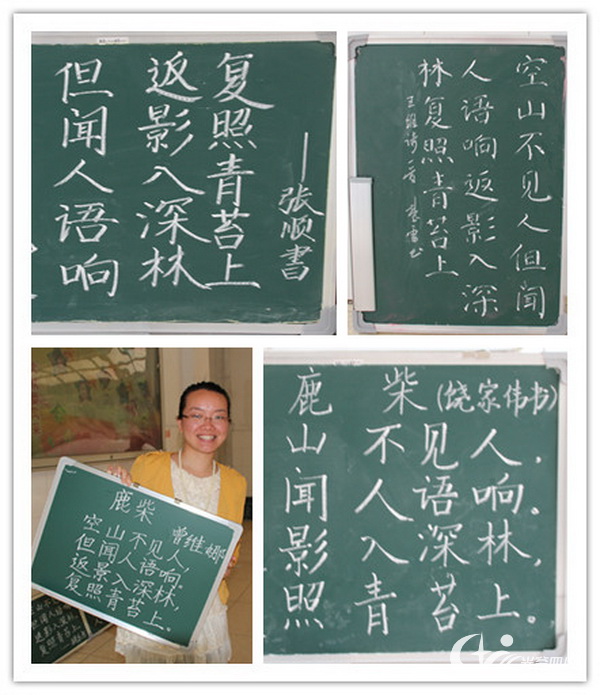 但闻人语响
返影入深林
复照青苔上
—张顺书
空山不见人但闻
人语响返影入深
林复照青苔上
王维诗一首
鹿柴
曾维娜
空山不见人,
但闻人语响。
返景入深林,
复照青苔上。
鹿柴(饶家伟书)
山不见人,
闻人语响。
影入深林,
照青苔上。